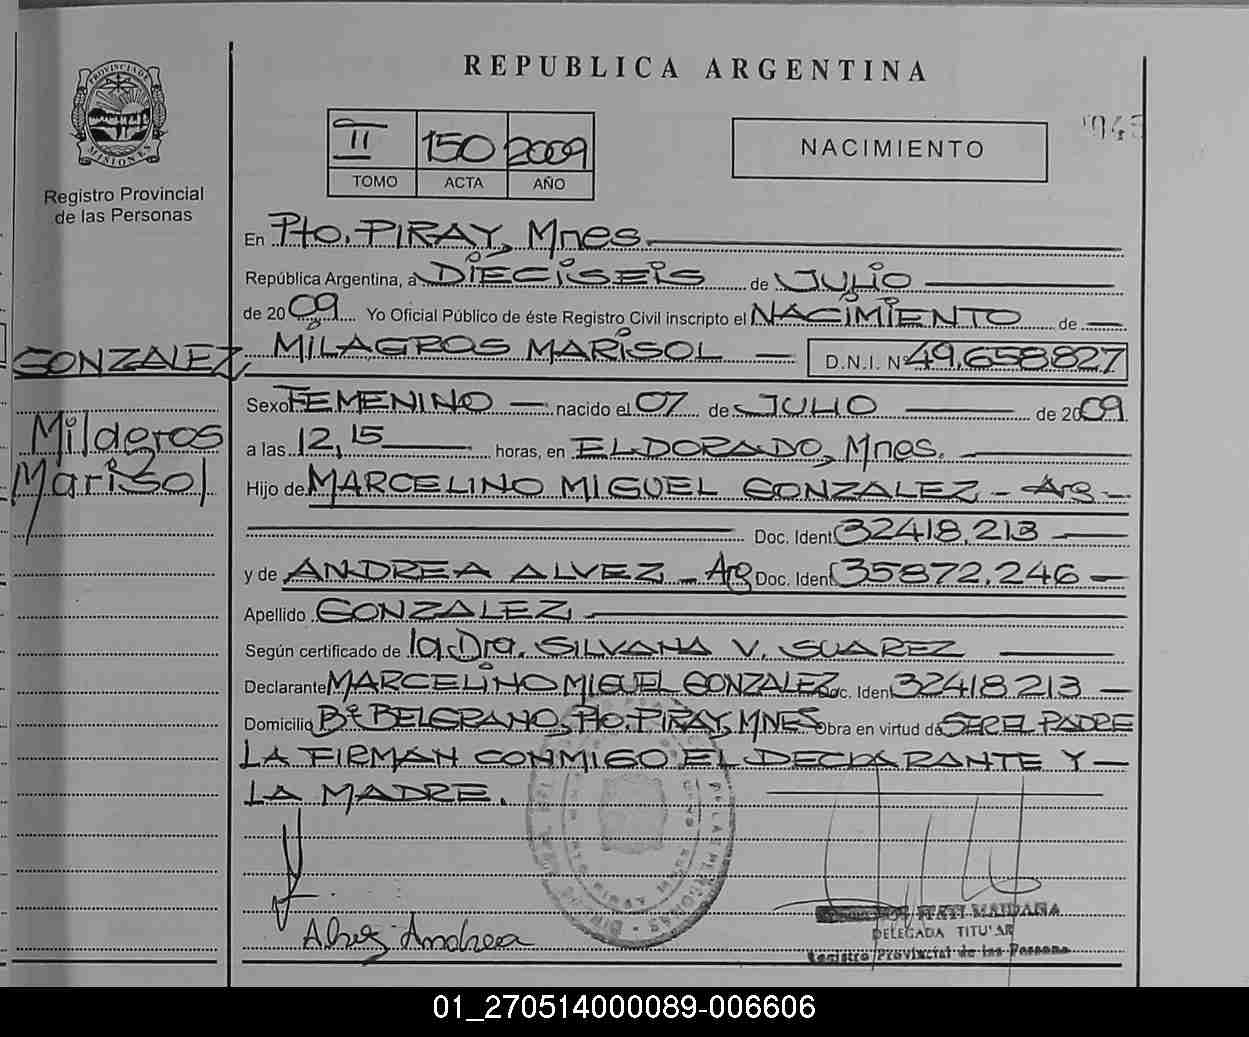 REPUBLICA ARGENTINA
PROVINCIA DE MISIONES
Registro Provincial
de las Personas
II 150 2009
TOMO ACTA AÑO
NACIMIENTO
En Pto. PIRAY, Mnes.
República Argentina, a DIECISEIS de JULIO
de 2009 Yo Oficial Público de éste Registro Civil inscripto el NACIMIENTO de
GONZALEZ
Milagros
Marisol
MILAGROS MARISOL D.N.I. Nº 49.658.827
Sexo FEMENINO nacido el 07 de JULIO de 2009
a las 12,15 horas, en ELDORADO, Mnes.
Hijo de MARCELINO MIGUEL GONZALEZ - Arg -
Doc. Ident. 32418.213
y de ANDREA ALVEZ - Arg Doc. Ident. 35872.246
Apellido GONZALEZ
Según certificado de la Dra. SILVANA V. SUAREZ
Declarante MARCELINO MIGUEL GONZALEZ Doc. Ident. 32418213
Domicilio Bº BELGRANO, Pto. PIRAY, MNES Obra en virtud de SER EL PADRE
LA FIRMAN CONMIGO EL DECLARANTE Y
LA MADRE.
Alvez Andrea
MAIDANA
DELEGADA TITULAR
Registro Provincial de las Personas
01_270514000089-006606